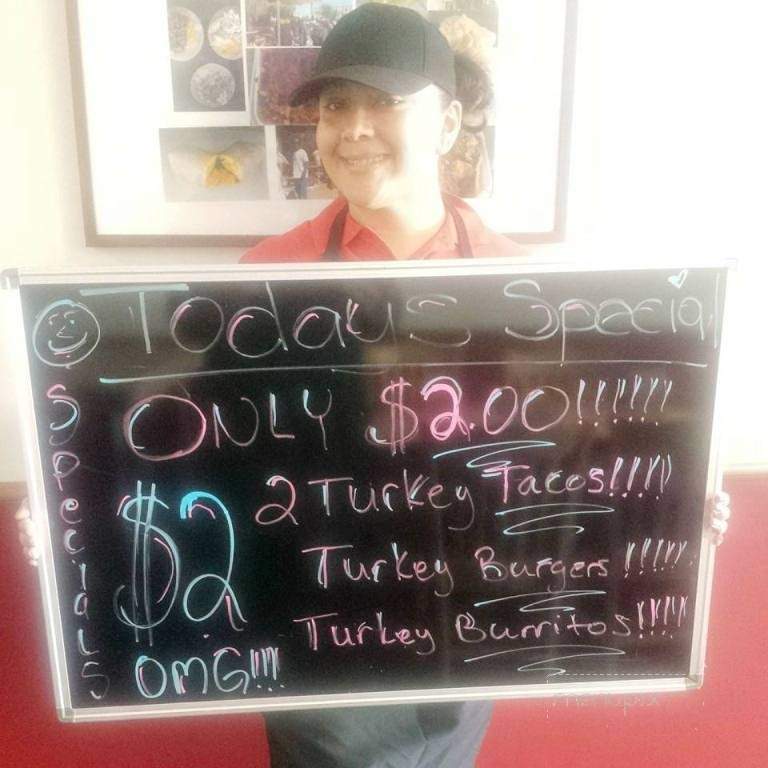 Todays Special
Specials
ONLY $2.00!!!!!!
$2
2 Turkey Tacos!!!!!
Turkey Burgers !!!!!
Turkey Burritos!!!!
OMG!!!